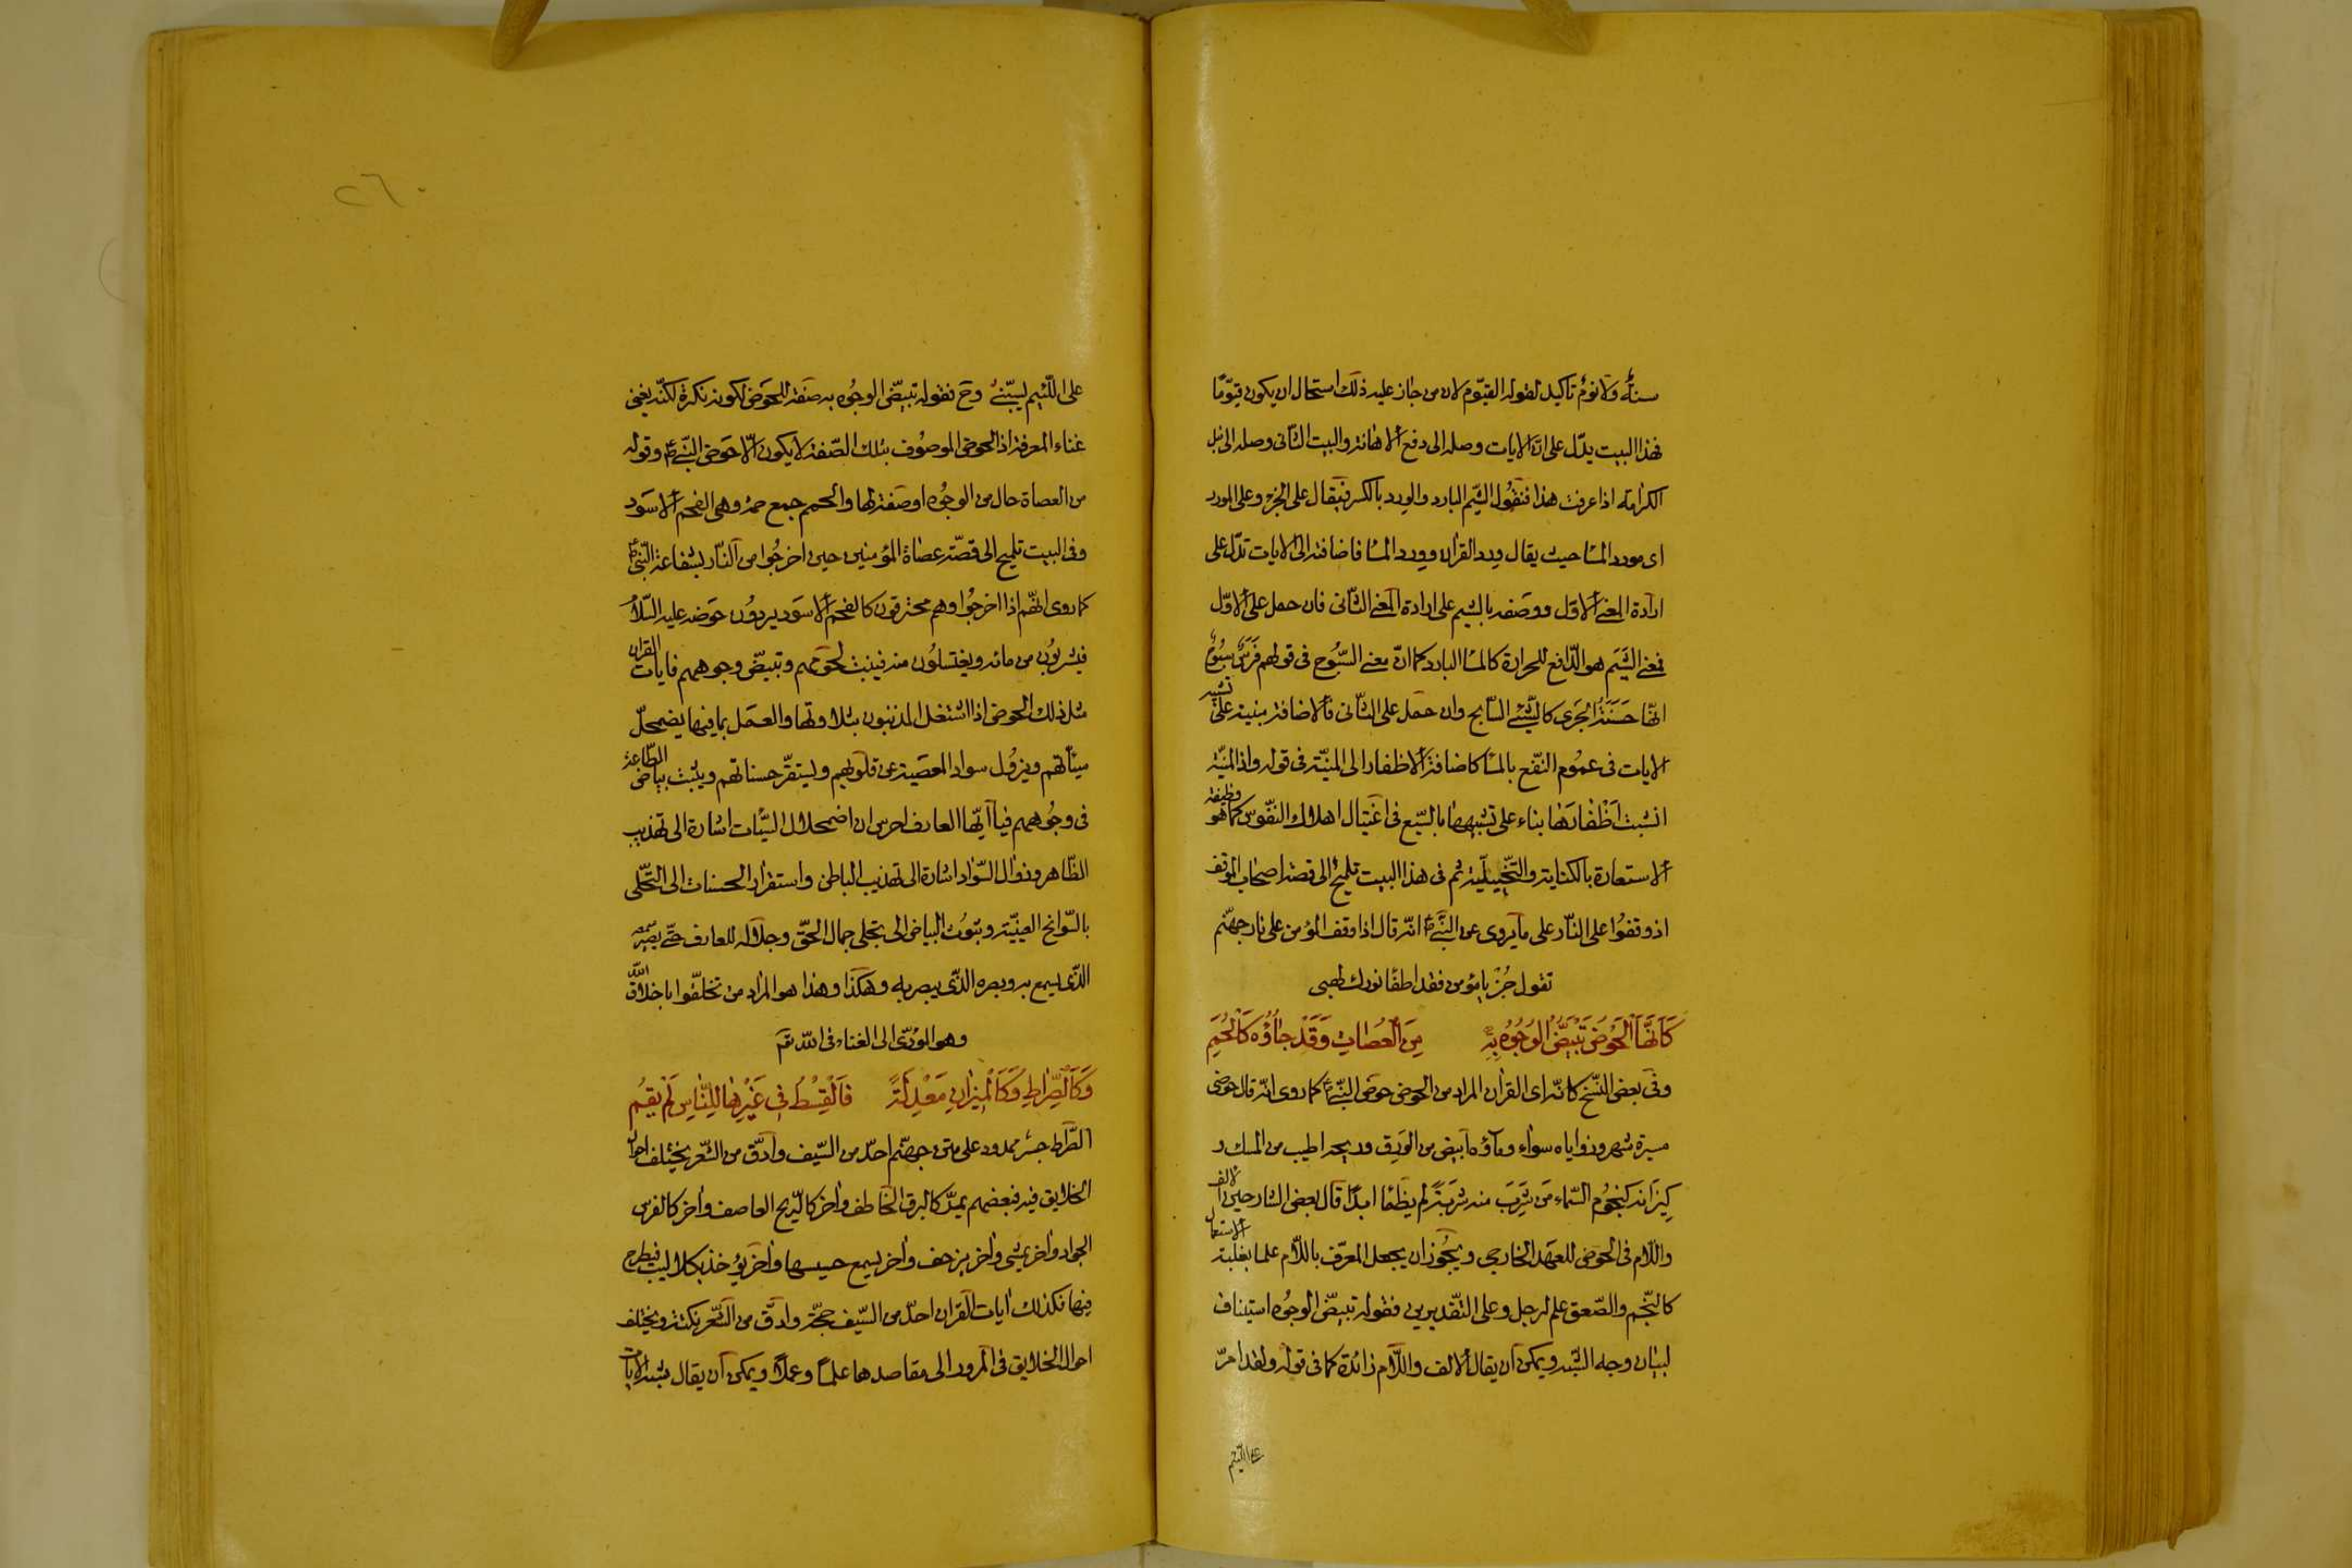 سنة ولا نوم تأكيد لقوله القيّوم لان من جاز عليه ذلك استحال ان يكون قيّوما
فهذا البيت يدلّ على انّ الايات وصله الى دفع الاهانة والبيت الثانى وصله الى نيل
الكرامة اذا عرفت هذا فنقول الشيم البارد والورد بالكسر فيقال على الجزء وعلى المورد
اى مورد الماء حيث يقال ورد القران وورد الماء فاضافته الى الايات تدلّ على
ارادة المعنى الاوّل ووصفه بالشيم على ارادة المعنى الثّانى فان حمل على الاوّل
فمعنى الشيم هو الدّافع للحرارة كالماء البارد كما انّ معنى السّبوح فى قولهم فرس سبوح
انّها حسنة الجرى كالشّىء السّابح وان حمل على الثّانى فالاضافة مبنية على تشبيه
الايات فى عموم النّفع بالماء كاضافة الاظفار الى المنيّة فى قوله واذا المنيّة
انشبت اظفارها بناء على تشبيهها بالسّبع فى اغتيال اهلاك النّفوس كما هو وظيفة
الاستعارة بالكناية والتّخييليّة ثم فى هذا البيت تلميح الى قصة اصحاب الموقف
اذ وقفوا على النّار على ما يروى عن النّبى انّه قال اذا وقف المؤمن على نار جهنّم
تقول جز يا مؤمن فقد اطفا نورك لهبى
كَاَنَّهَا الْحَوْضُ تَبْيَضُّ الْوُجُوهُ بِهِ مِنَ الْعُصَاتِ وَقَدْ جَاؤُهُ كَالْحُمَمِ
وفى بعض النّسخ كانّه اى القران المراد من الحوض حوض النّبى كما روى انّه قال حوضى
مسيرة شهر وزواياه سواء وماؤه ابيض من الورق وريحه اطيب من المسك و
كيزانه كنجوم السّماء من شرب منه شربة لم يظما ابدا قال بعض الشارحين الالف
واللّام فى الحوض للعهد الخارجى ويجوز ان يجعل المعرّف باللّام علما بغلبة الاستعمال
كالنّجم والصّعق علم لرجل وعلى التّقديرين فقوله تبيضّ الوجوه استيناف
لبيان وجه الشّبه ويمكن ان يقال الالف واللّام زائدة كما فى قوله ولقد امرّ
على اللّئيم
٢٦٠
على اللّئيم يسبّنى وح فقوله تبيضّ الوجوه به صفة للحوض لكونه نكرة لكنّه يغنى
غناء المعرفة اذ الحوض الموصوف بتلك الصّفة لا يكون الّا حوض النّبى وقوله
من العصاة حال من الوجوه او صفة لها والحمم جمع حمة وهى الفحم الاسود
وفى البيت تلميح الى قصّة عصاة المؤمنين حين اخرجوا من النّار بشفاعة النّبى
كما روى انّهم اذا اخرجوا وهم محترقون كالفحم الاسود يردون حوضه عليه السّلام
فيشربون من مائه ويغتسلون منه فينبت لحومهم وتبيضّ وجوههم فايات القران
مثل ذلك الحوض اذا اشتغل المذنبون بتلاوتها والعمل بما فيها يضمحلّ
سيئاتهم ويزول سواد المعصية عن قلوبهم ويستقرّ حسناتهم ويثبت بياض الطّاعة
فى وجوههم فيا ايّها العارف احرس ان اضمحلال السّيّئات اشارة الى تهذيب
الظّاهر وزوال السّواد اشارة الى تهذيب الباطن واستقرار الحسنات الى التّحلّى
بالسّوانح الغيبيّة وثبوت البياض الى تجلى جمال الحقّ وجلاله للعارف حتّى يصير سمعه
الّذى يسمع به وبصره الّذى يبصر به وهكذا وهذا هو المراد من تخلّقوا باخلاق الله
وهو المؤدّى الى الفناء فى الله تم
وَكَالصِّرَاطِ وَكَالْمِيزَانِ مَعْدِلَةً فَالْقِسْطُ فِي غَيْرِهَا لِلنَّاسِ لَمْ يَقُمِ
الصّراط جسر ممدود على متن جهنّم احدّ من السّيف وادقّ من الشّعر يختلف احوال
الخلايق فيه فبعضهم يمرّ كالبرق الخاطف واخر كالرّيح العاصف واخر كالفرس
الجواد واخر يمشى واخر يزحف واخر يسمع حسيسها واخر يؤخذ بكلاليب فيطرح
فيها فكذلك ايات القران احدّ من السّيف حجّة وادقّ من الشّعر نكتة ويختلف
احوال الخلايق فى المرور الى مقاصدها علما وعملا ويمكن ان يقال شبه الايات